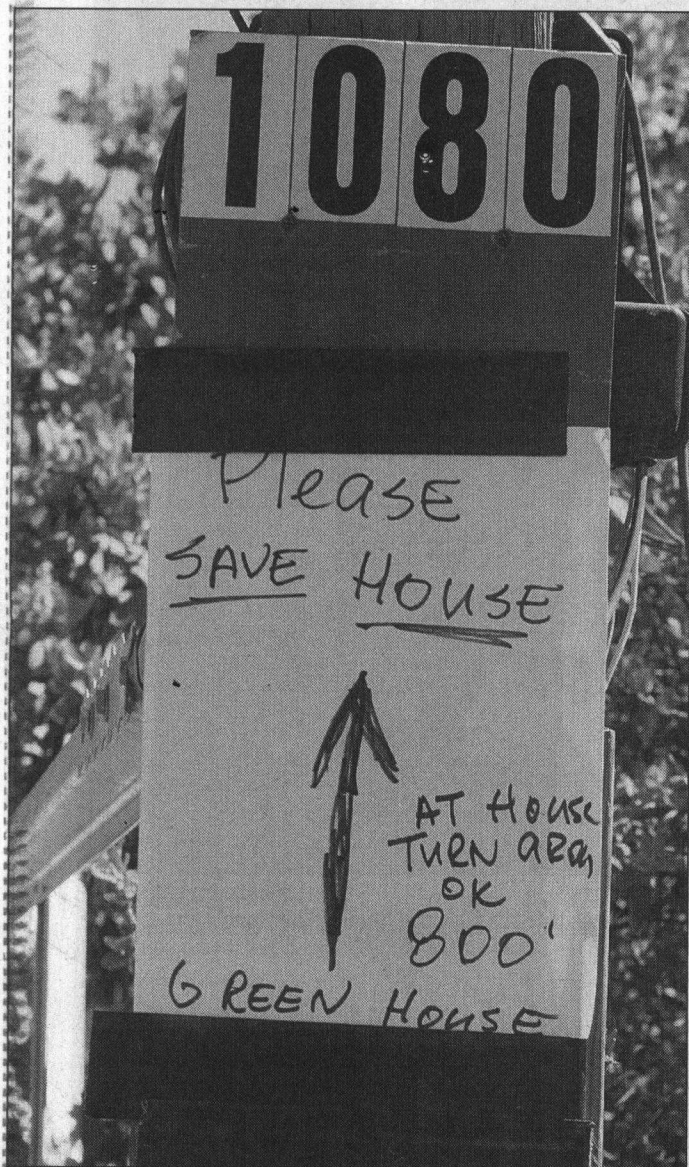 1080
Please
SAVE HOUSE
AT HOUSE
TURN
OK
800'
GREEN HOUSE